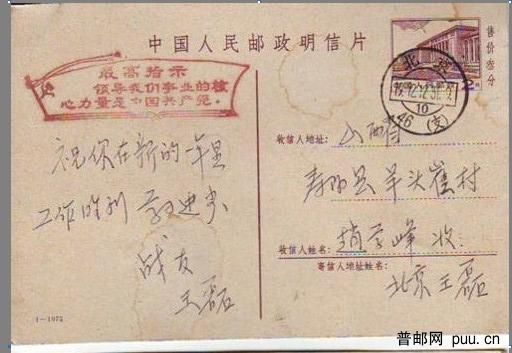 中国人民邮政明信片
售价叁分
最高指示
领导我们事业的核
心力量是中国共产党。
祝你在新的一年里
工作胜利
战友
王磊
1—1972
北京
10
46(支)
收信人地址:
山西省
寿阳县羊头崖村
收信人姓名:
赵学峰 收
寄信人地址姓名:
北京王磊
普邮网 puu.cn